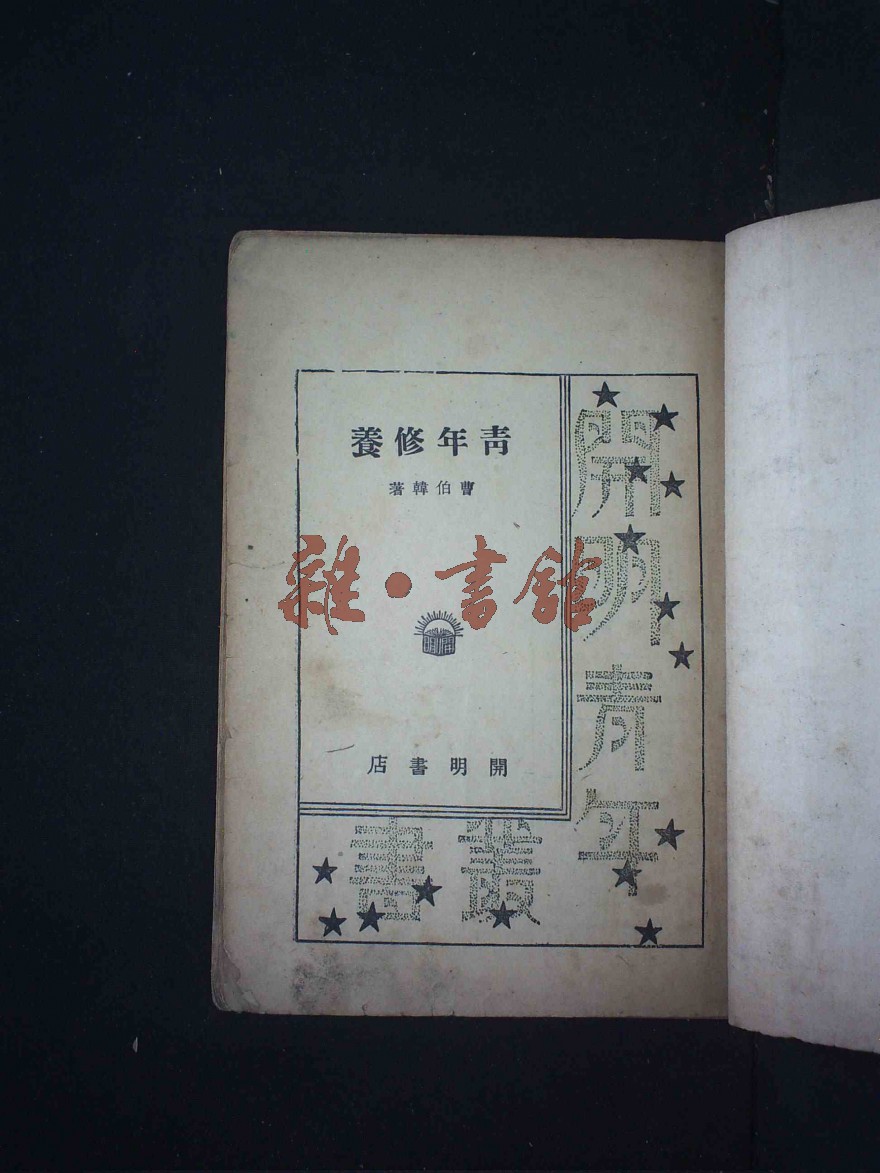 青年修養
曹伯韓著
雜·書館
開明
開明書店
開明青年
叢書